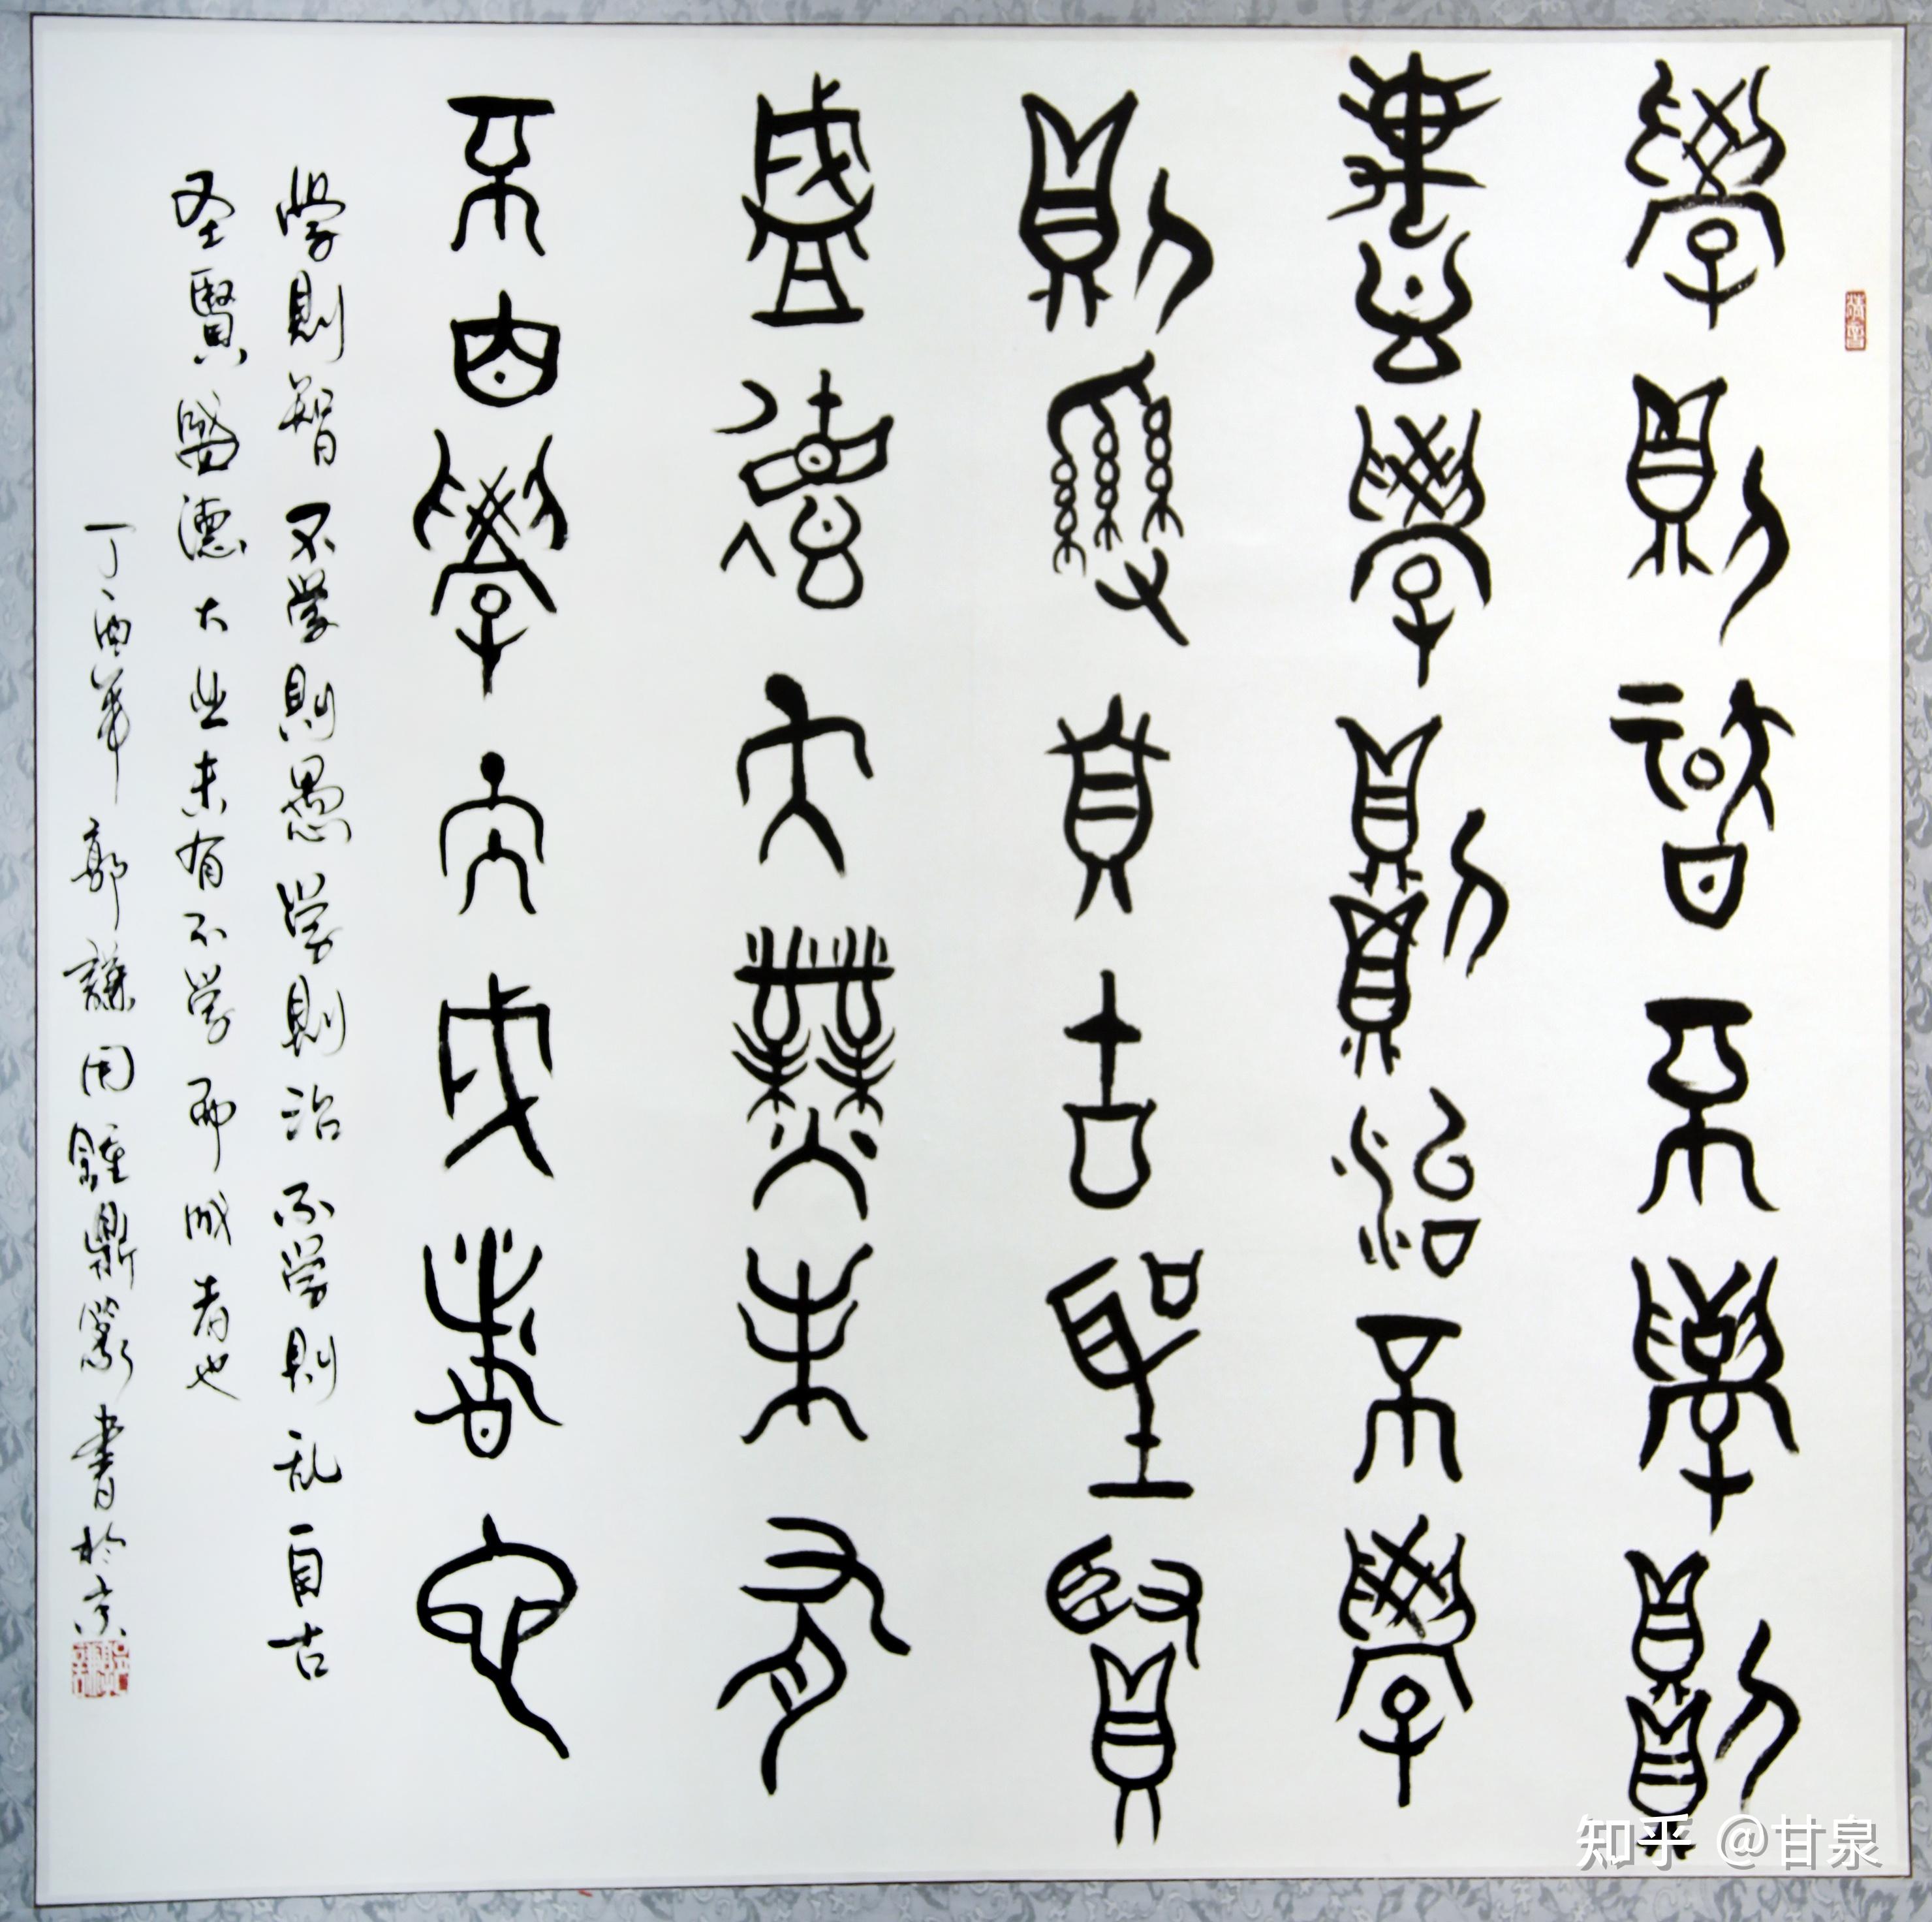 學則智不學則
愚學則治不學
則亂自古聖賢
盛德大業未有
不由學而成者也
学則智不学則愚学則治不学則乱自古
圣賢盛德大业未有不学而成者也
丁酉年郭謙用鍾鼎篆書於京
知乎 @甘泉